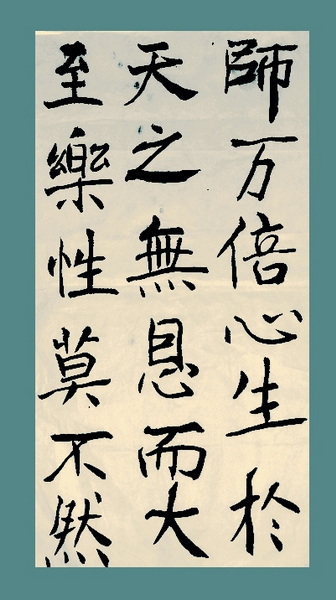 師万倍心生於
天之無恩而大
至樂性莫不然